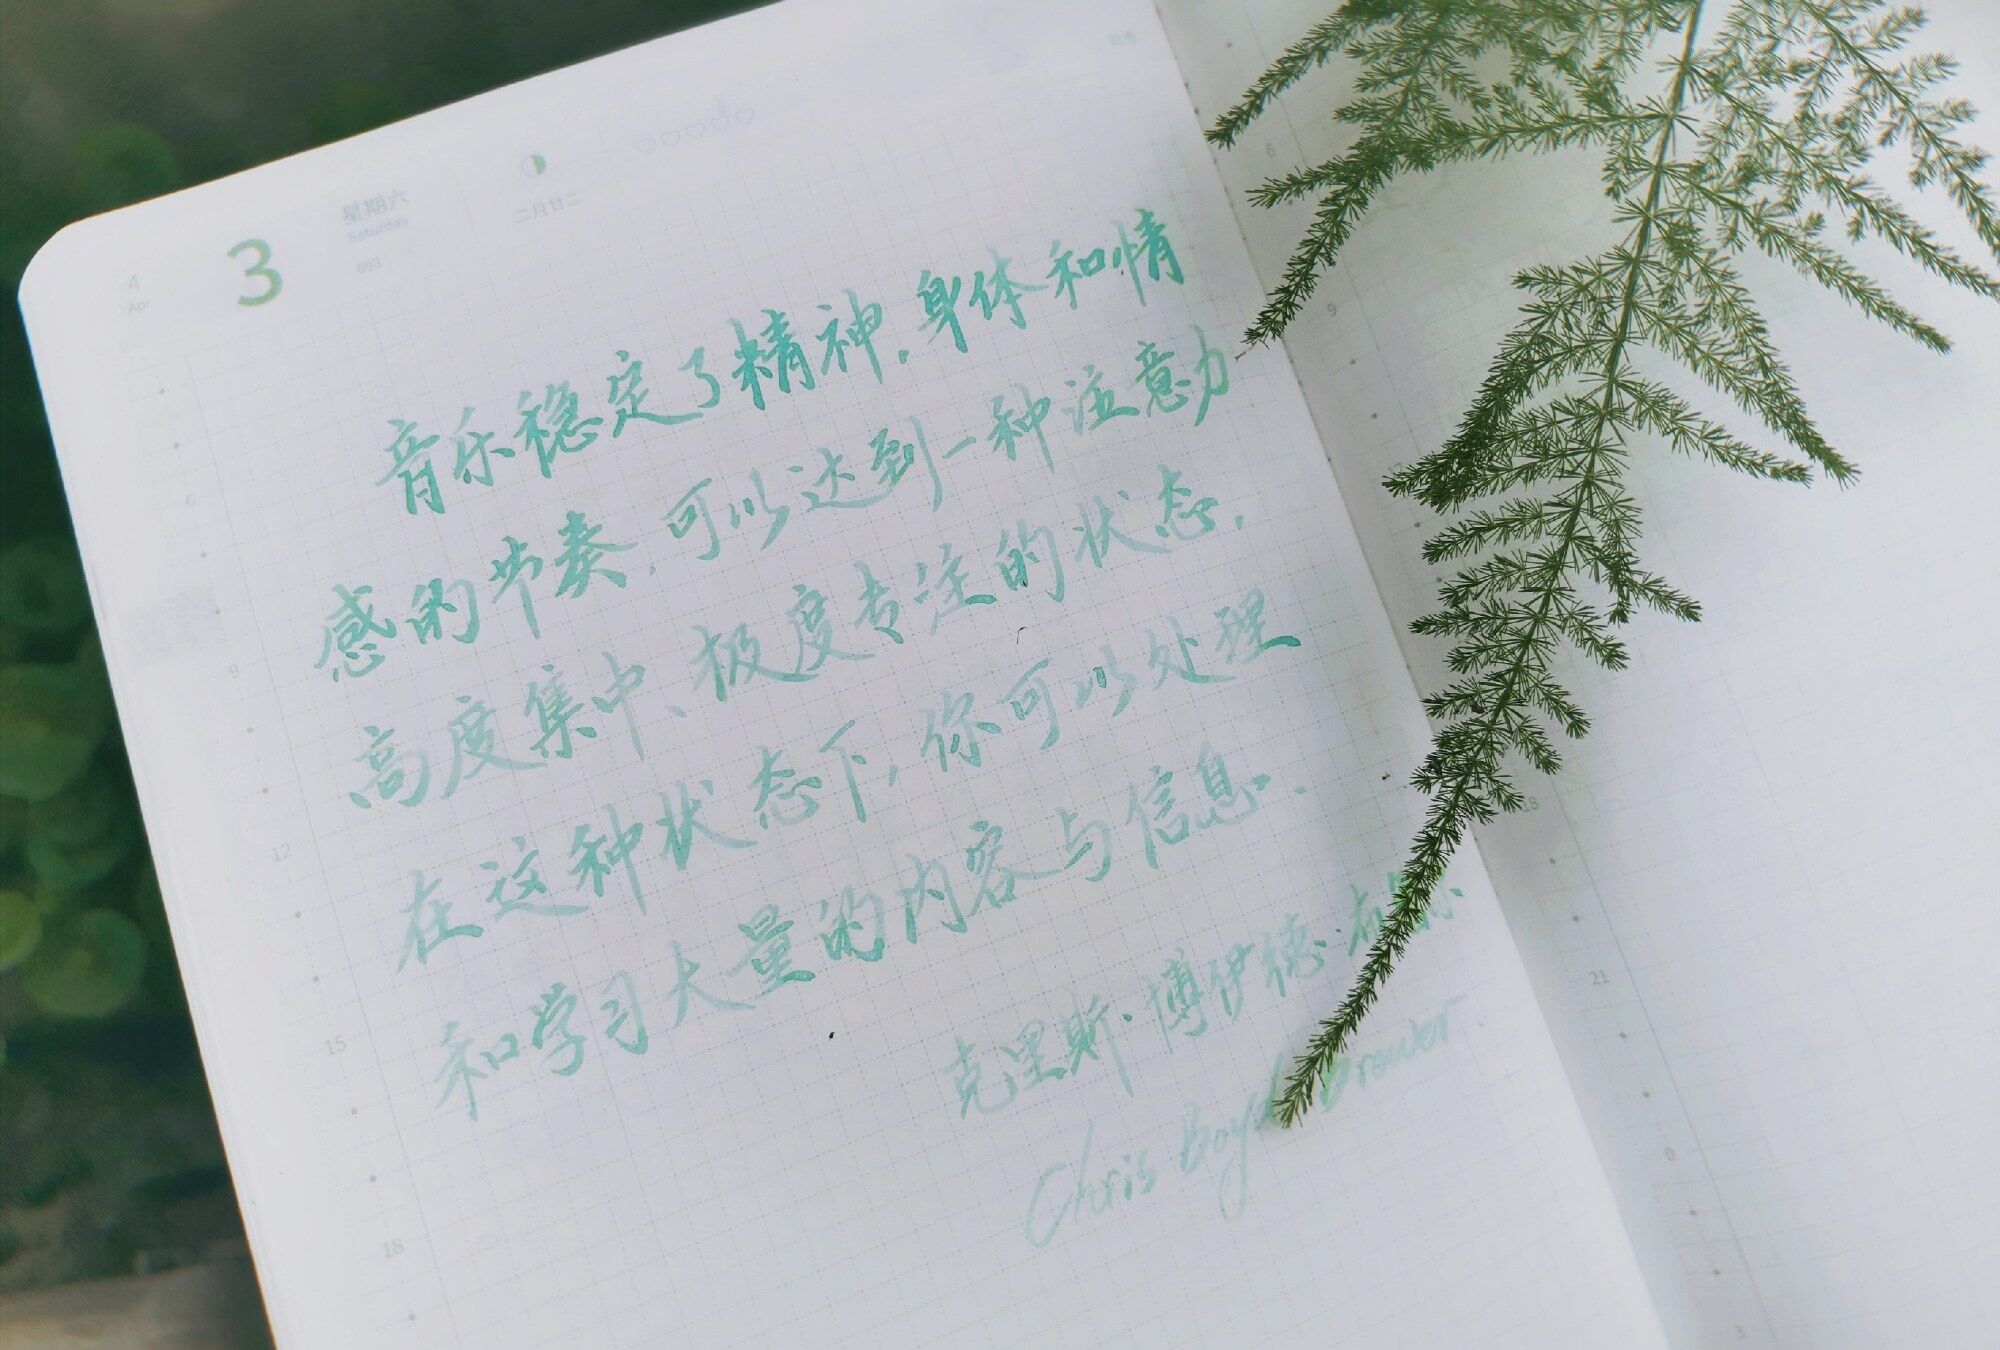 4
Apr
3
星期六
Saturday
093
二月廿二
音乐稳定了精神，身体和情
感的节奏，可以达到一种注意力
高度集中、极度专注的状态，
在这种状态下，你可以处理
和学习大量的内容与信息.
克里斯·博伊德·布
Chris Boyd Brewer
6
9
12
15
18
6
9
12
18
21
0
3